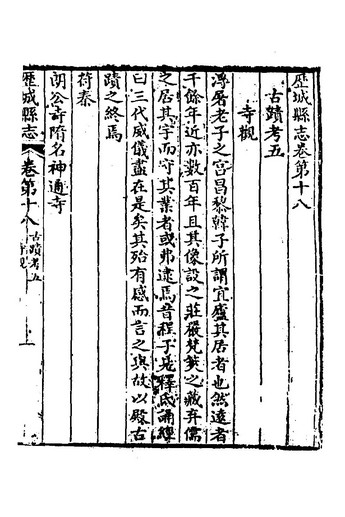 歷城縣志卷第十八
古蹟考五
寺觀
浮屠老子之宮昌黎韓子所謂宜廬其居者也然遠者
千餘年近亦數百年且其像設之莊嚴梵筴之藏弆儒
之居其宇而守其業者或弗逮焉昔程子見釋氏誦經
曰三代威儀盡在是矣其殆有感而言之與故以殿古
蹟之終焉
苻秦
朗公寺隋名神通寺
歷城縣志 卷第十八 古蹟考五 寺觀 一